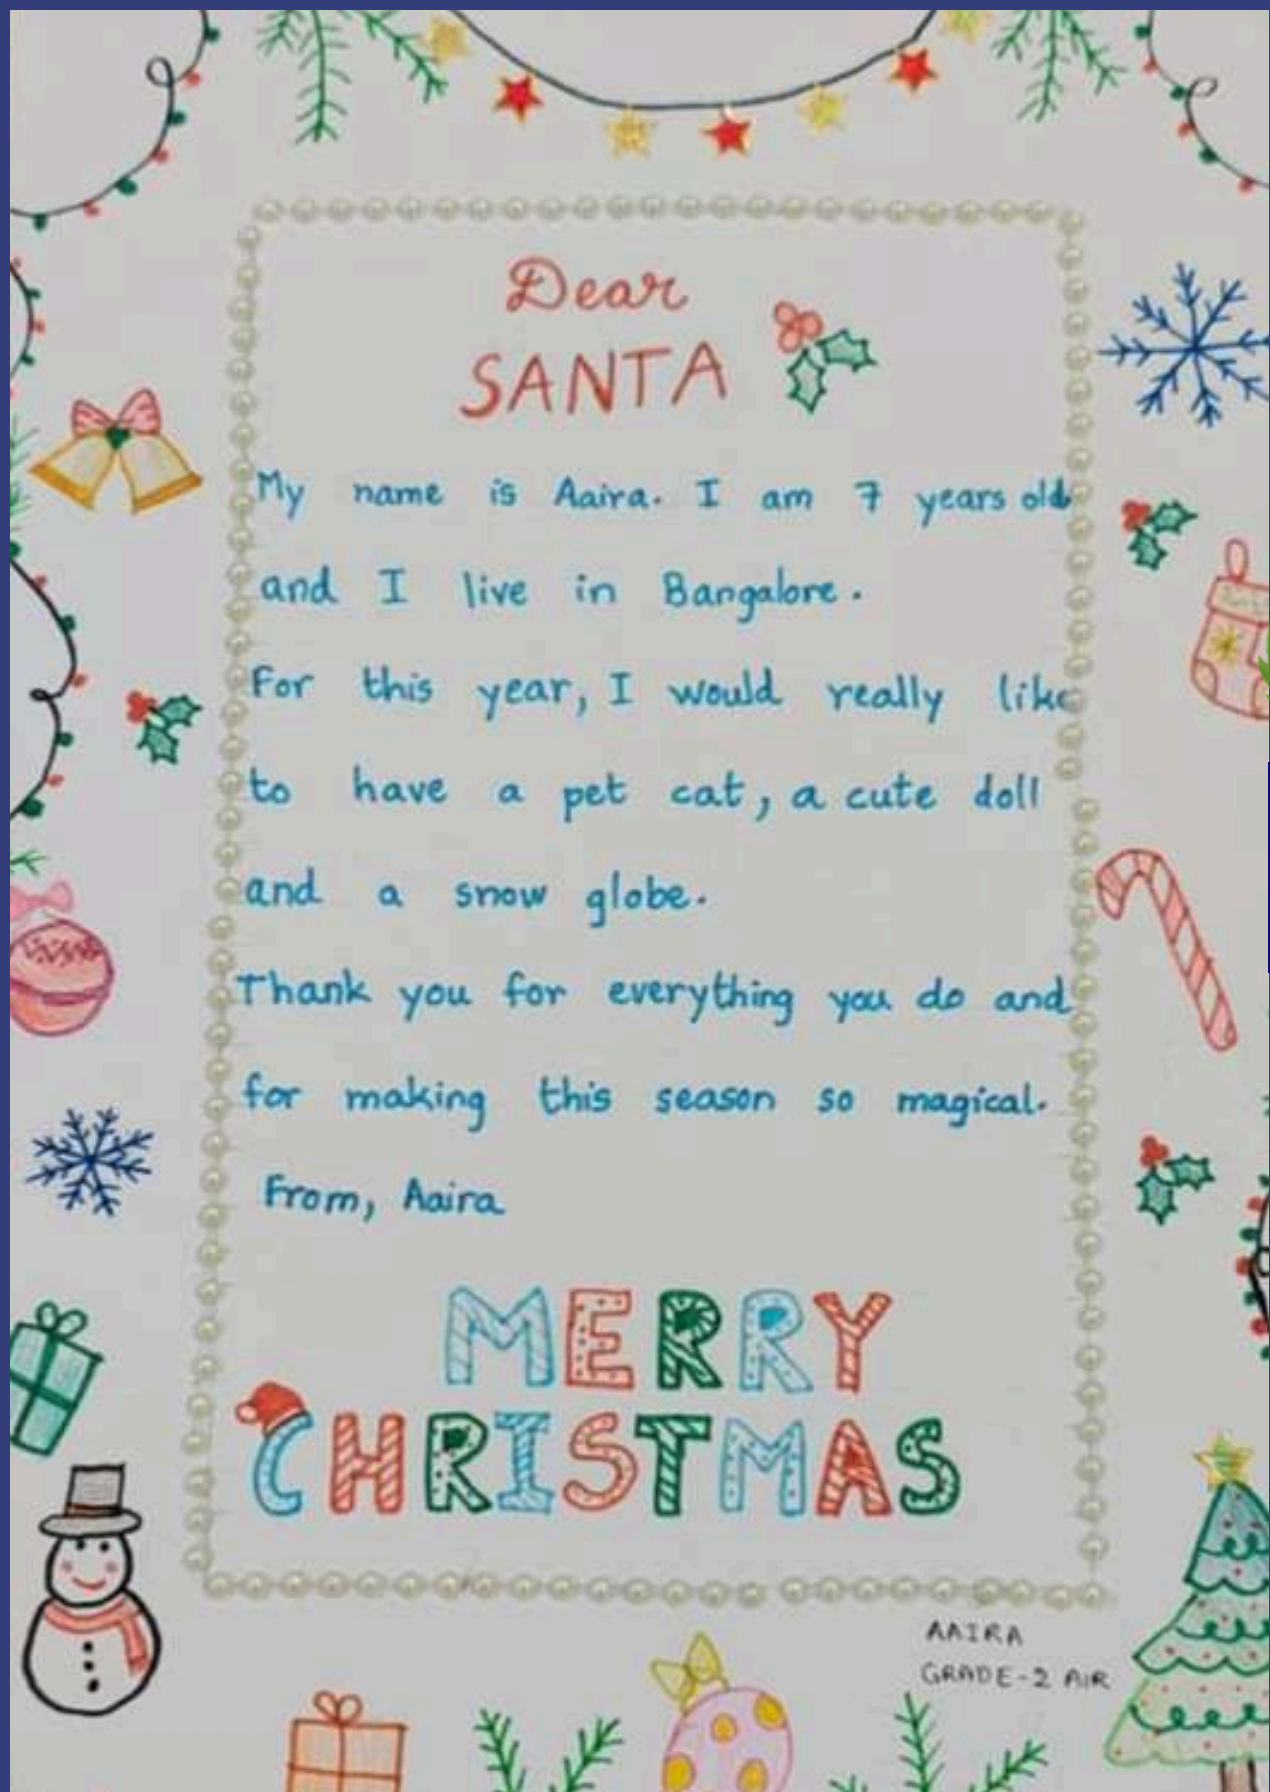 Dear
SANTA
My name is Aaira. I am 7 years old
and I live in Bangalore.
For this year, I would really like
to have a pet cat, a cute doll
and a snow globe.
Thank you for everything you do and
for making this season so magical.
From, Aaira
MERRY
CHRISTMAS
AAIRA
GRADE-2 AIR